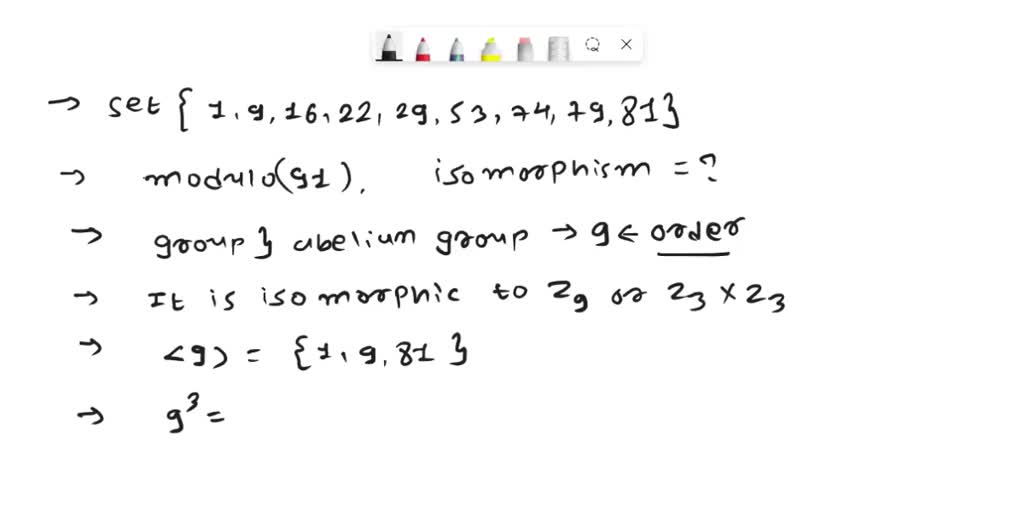 → set { 1, 9, 16, 22, 29, 53, 74, 79, 81 }
→ modulo(91), isomorphism = ?
→ group } abelium group → 9 ← order
→ It is isomorphic to Z9 or Z3 × Z3
→ <9> = { 1, 9, 81 }
→ 9³ =